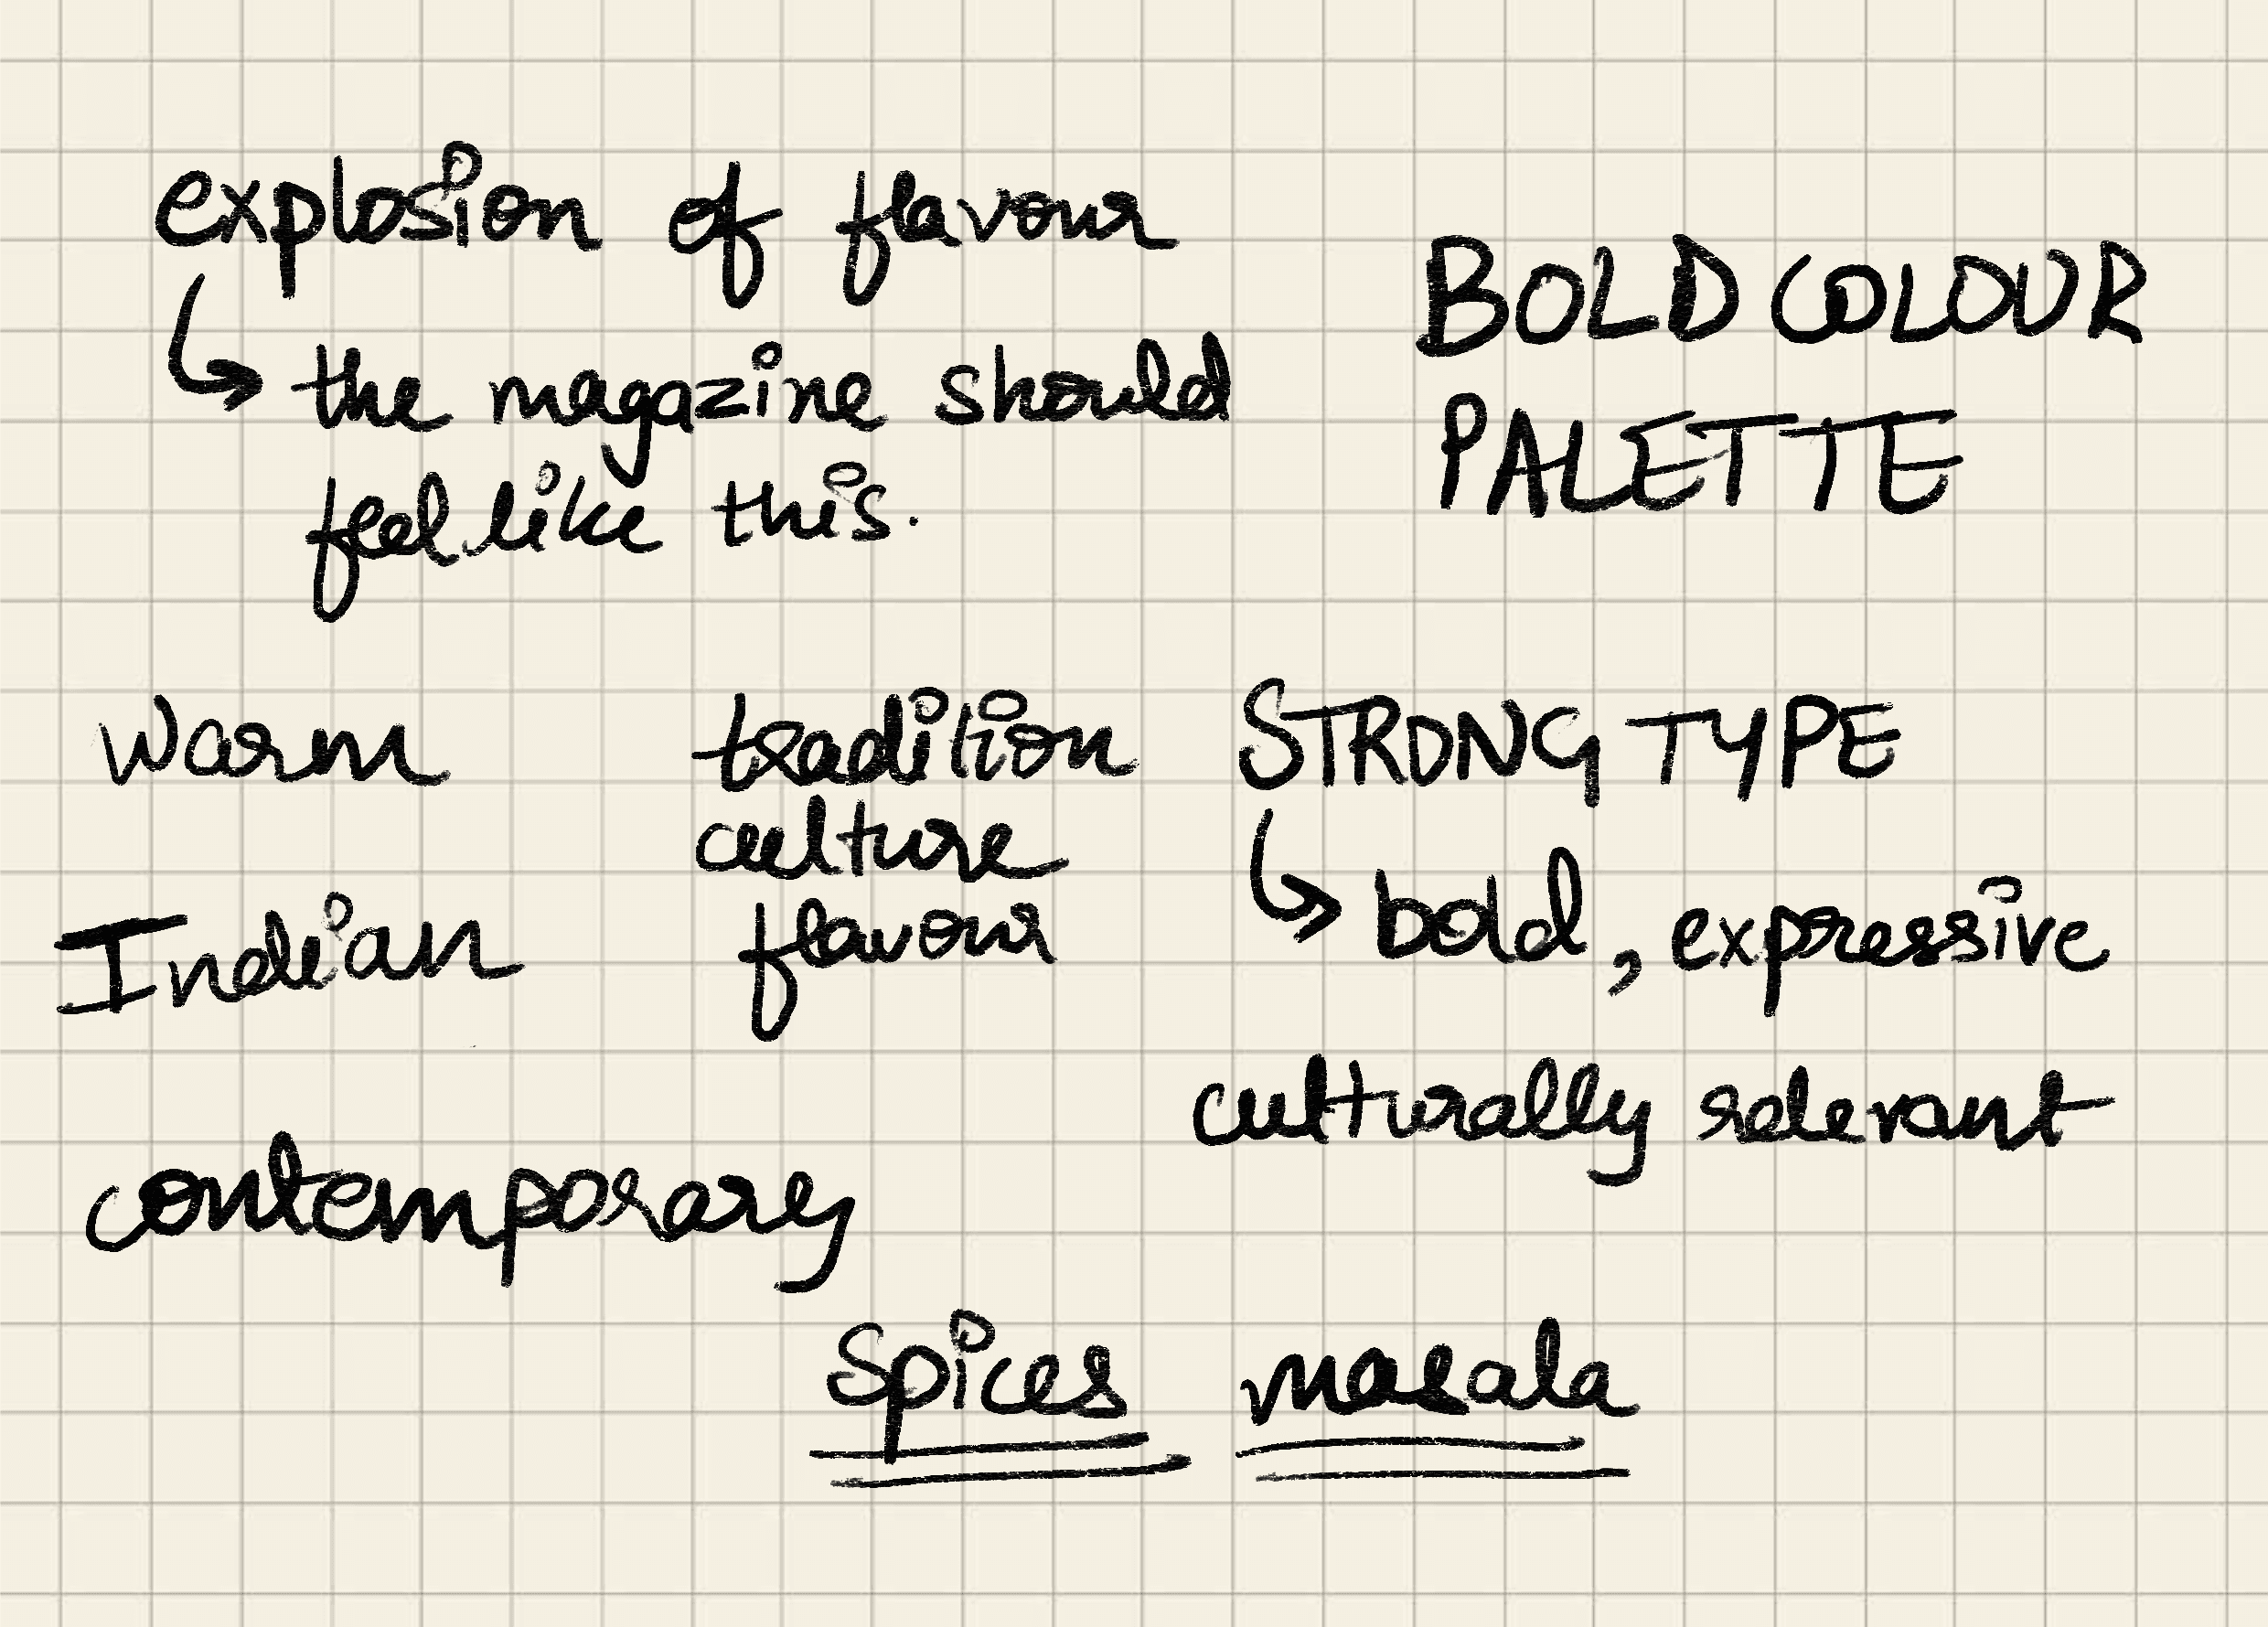 explosion of flavour
the magazine should
feel like this.
BOLD COLOUR
PALETTE
warm
tradition
culture
flavour
STRONG TYPE
bold, expressive
Indian
culturally relevant
contemporary
Spices masala